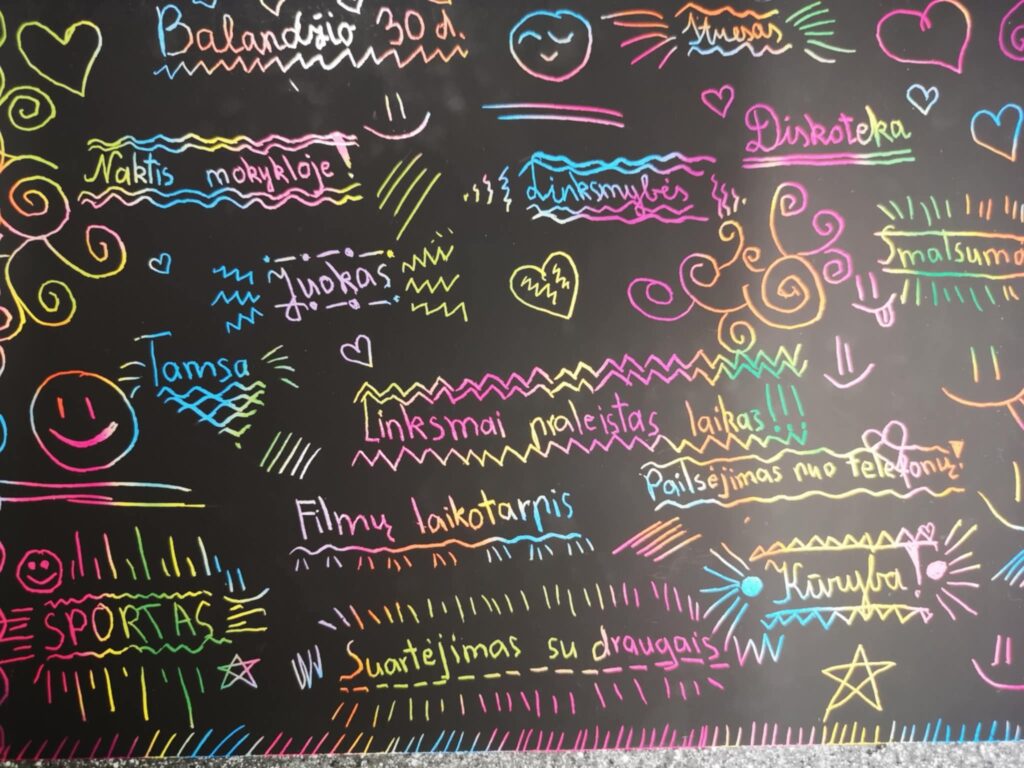 Balandžio 30 d.
Stresas
Diskoteka
Naktis mokykloje!
Linksmybės
Smalsuma
Juokas
Tamsa
Linksmai praleistas laikas!!!
Pailsėjimas nuo telefonų!
Filmų laikotarpis
Kūryba!
SPORTAS
Suartėjimas su draugais